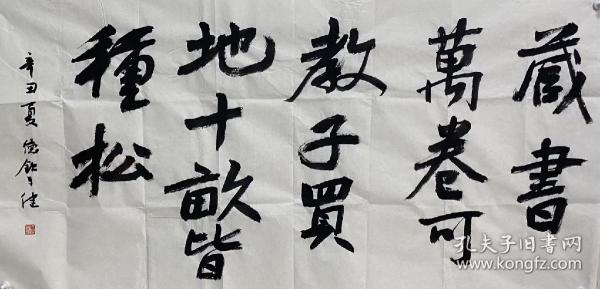 藏書
萬卷可
教子買
地十畝皆
種松
辛丑夏
孔夫子旧书网
www.kongfz.com